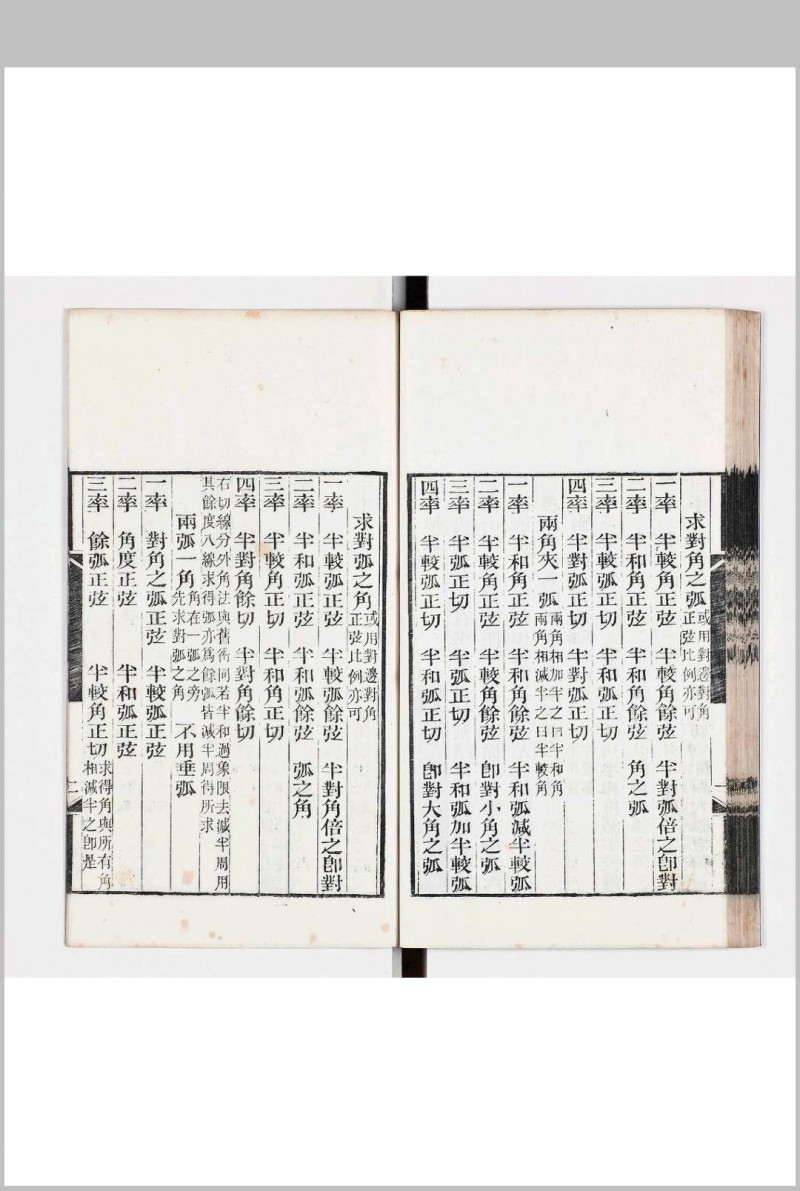 求對角之弧或用對邊對角正弦比例亦可
一率　半較角正弦　半較角餘弦　半對弧倍之卽對
二率　半和角正弦　半和角餘弦　角之弧
三率　半較弧正切　半和弧正切
四率　半對弧正切　半對弧正切
兩角夾一弧兩角相加半之曰半和角兩角相減半之曰半較角
一率　半和角正弦　半和角餘弦　半和弧減半較弧
二率　半較角正弦　半較角餘弦　卽對小角之弧
三率　半弧正切　半弧正切　半和弧加半較弧
四率　半較弧正切　半和弧正切　卽對大角之弧
求對弧之角或用對邊對角正弦比例亦可
一率　半較弧正弦　半較弧餘弦　半對角倍之卽對
二率　半和弧正弦　半和弧餘弦　弧之角
三率　半較角正切　半和角正切
四率　半對角餘切　半對角餘切
右切線分外角法與舊術同若半和過象限去減半周用
其餘度八線求得弧亦爲餘弧皆減半周得所求
兩弧一角角在一弧之旁先求對弧之角　不用垂弧
一率　對角之弧正弦　半較弧正弦
二率　角度正弦　半和弧正弦
三率　餘弧正弦　半較角正切求得角與所有角相減半之卽是
一
二